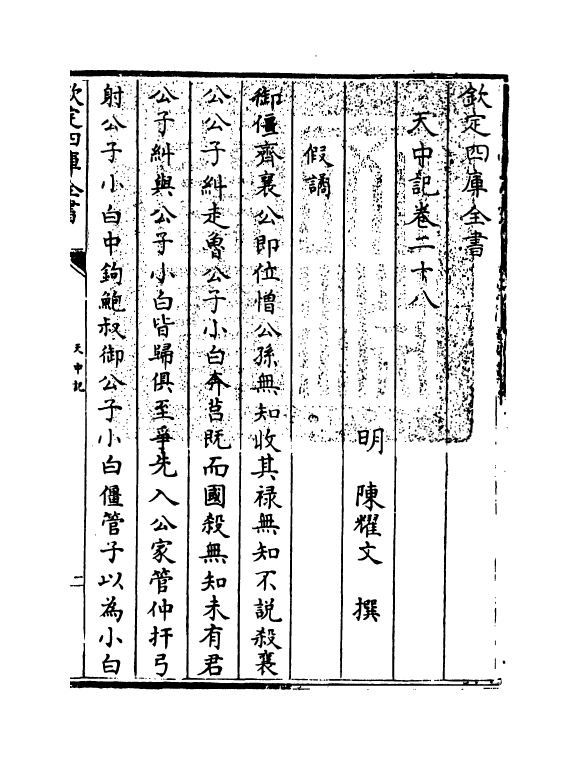 欽定四庫全書
天中記卷二十八
明 陳耀文 撰
假譎
御僵齊襄公即位憎公孫無知收其禄無知不説殺襄
公公子糾走魯公子小白奔莒既而國殺無知未有君
公子糾與公子小白皆歸俱至爭先入公家管仲扞弓
射公子小白中鉤鮑叔御公子小白僵管子以為小白
欽定四庫全書
天中記